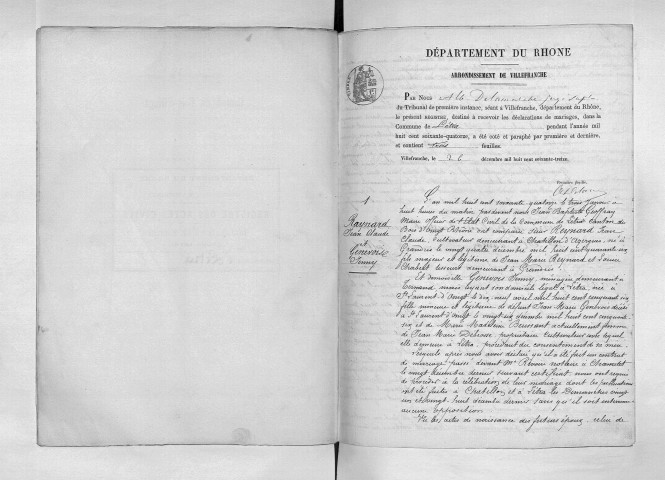 DÉPARTEMENT DU RHONE
ARRONDISSEMENT DE VILLEFRANCHE
PAR NOUS
du Tribunal de première instance, séant à Villefranche, département du Rhône,
le présent REGISTRE, destiné à recevoir les déclarations de mariages, dans la
Commune de Létra pendant l'année mil
huit cent soixante-quatorze, a été coté et paraphé par première et dernière,
et contient trois feuilles.
Villefranche, le 26 décembre mil huit cent soixante-treize.
Première feuille.
1
Raynard
Jean Claude
et
Genevois
Fanny
L'an mil huit cent soixante quatorze le trois Janvier à
huit heures du matin pardevant nous Jean Baptiste Geoffray
Maire officier de l'Etat Civil de la commune de Létra Canton du
Bois d'Oingt Rhône ont comparu Sieur Reynard Jean
Claude, Cultivateur demeurant à Chatillon d'Azergues, né à
Grandris le vingt quatre décembre mil huit cent quarante six
fils majeur et légitime de Jean Marie Reynard et
Chabert demeurant à Grandris
Et demoiselle Genevois Fanny, ménagère demeurant à
Ternand mais ayant son domicile légal à Létra, née à
St Laurent d'Oingt le dix neuf avril mil huit cent cinquante six
fille mineure et légitime de défunt Jean Marie Genevois décédé
à St Laurent d'Oingt le vingt six décembre mil huit cent cinquante
six et de Marie Madeleine actuellement femme
de Jean Marie propriétaire Cultivateur avec lequel
elle demeure à Létra, procédant du consentement de sa mère
Lesquels après nous avoir déclaré qu'il a été fait un contrat
de mariage passé devant Me notaire à Chamelet
le vingt décembre dernier suivant certificat, nous ont requis
de procéder à la célébration de leur mariage dont les publications
ont été faites à Chatillon et à Létra les Dimanches vingt
un et vingt huit décembre dernier sans qu'il soit intervenu
aucune opposition.
Vu les actes de naissance des futurs époux, celui de